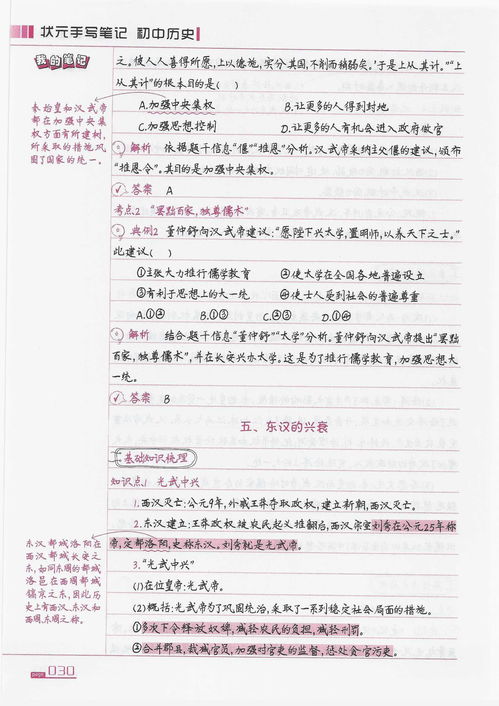 状元手写笔记 初中历史
我的笔记
秦始皇和汉武帝
都在加强中央集
权方面有所建树,
所采取的措施巩
固了国家的统一。
之。彼人人喜得所愿,上以德施,实分其国,不削而稍弱矣。'于是上从其计。”“上
从其计”的根本目的是( )
A.加强中央集权 B.让更多的人得到封地
C.加强思想控制 D.让更多的人有机会进入政府做官
解析 依据题干信息“偃”“推恩”分析。汉武帝采纳主父偃的建议,颁布
“推恩令”。其目的是加强中央集权。
答案 A
考点2 “罢黜百家,独尊儒术”
典例2 董仲舒向汉武帝建议:“愿陛下兴太学,置明师,以养天下之士。”
此建议( )
①主张大力推行儒学教育 ②使太学在全国各地普遍设立
③有利于思想上的大一统 ④使士人受到社会的普遍尊重
A.①② B.①③ C.②③ D.①④
解析 结合题干信息“董仲舒”“太学”分析。董仲舒向汉武帝提出“罢黜
百家,独尊儒术”,并在长安兴办太学。这是为了推行儒学教育,加强思想大
一统。
答案 B
五、东汉的兴衰
基础知识梳理
知识点1 光武中兴
1.西汉灭亡:公元9年,外戚王莽夺取政权,建立新朝,西汉灭亡。
2.东汉建立:王莽政权被农民起义推翻后,西汉宗室刘秀在公元25年称
帝,定都洛阳,史称东汉。刘秀就是光武帝。
3.“光武中兴”
(1)在位皇帝:光武帝。
(2)概括:光武帝为了巩固统治,采取了一系列稳定社会局面的措施。
①多次下令释放奴婢,减轻农民的负担,减轻刑罚。
②合并郡县,裁减官员,加强对官吏的监督,惩处贪官污吏。
东汉都城洛阳在
西汉都城长安之
东,如同东周的都城
洛邑在西周都城
镐京之东,因此历
史上有西汉、东汉和
西周、东周之称。
page 030